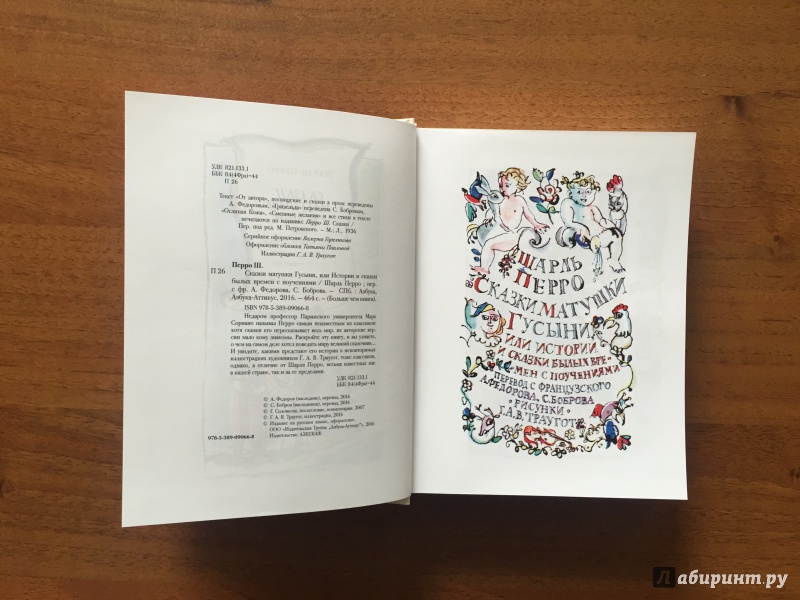 УДК 821.133.1
ББК 84(4Фра)-44
П 26
Текст «От автора», посвящение и сказки в прозе переведены
А. Федоровым, «Гризельда» переведена С. Бобровым,
«Ослиная Кожа», «Смешные желания» и все стихи в тексте
печатаются по изданию: Перро Ш. Сказки /
Пер. под ред. М. Петровского. – М.; Л., 1936
Серийное оформление Валерия Гореликова
Оформление обложки Татьяны Павловой
Иллюстрации Г. А. В. Траугот
Перро Ш.
П 26 Сказки матушки Гусыни, или Истории и сказки
былых времен с поучениями / Шарль Перро ; пер.
с фр. А. Федорова, С. Боброва. – СПб. : Азбука,
Азбука-Аттикус, 2016. – 464 с. – (Больше чем книга).
ISBN 978-5-389-09066-8
Недаром профессор Парижского университета Марк
Сориано называл Перро самым неизвестным из классиков:
хотя сказки его пересказывает весь мир, их авторские вер-
сии мало кому знакомы. Раскройте эту книгу, и вы узнаете,
о чем на самом деле хотел поведать миру великий сказочник...
И увидите, какими предстают его истории в неповторимых
иллюстрациях художников Г. А. В. Траугот, тоже классиков,
однако, в отличие от Шарля Перро, весьма известных как
в нашей стране, так и за ее пределами.
УДК 821.133.1
ББК 84(4Фра)-44
© А. Федоров (наследник), перевод, 2016
© С. Бобров (наследник), перевод, 2016
© Г. А. В. Траугот, иллюстрации, 2016
© Издание на русском языке, оформление.
ООО «Издательская Группа „Азбука-Аттикус“», 2016
Издательство АЗБУКА®
978-5-389-09066-8
ШАРЛЬ
ПЕРРО
СКАЗКИ МАТУШКИ
ГУСЫНИ
ИЛИ ИСТОРИИ
И СКАЗКИ БЫЛЫХ ВРЕ-
МЕН С ПОУЧЕНИЯМИ
ПЕРЕВОД С ФРАНЦУЗСКОГО
А.ФЕДОРОВА, С.БОБРОВА
РИСУНКИ
Г.А.В.ТРАУГОТ
Лабиринт.ру